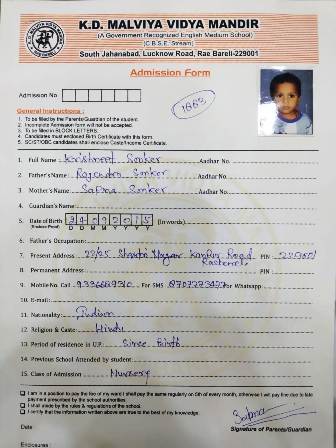 K.D. MALVIYA VIDYA MANDIR
(A Government Recognized English Medium School)
(C.B.S.E. Stream)
South Jahanabad, Lucknow Road, Rae Bareli-229001
Admission Form
Admission No.
General Instructions :
1. To be filled by the Parents/Guardian of the student.
2. Incomplete Admission form will not be accepted.
3. To be filled in BLOCK LETTERS.
4. Candidates must enclosed Birth Certificate with this form.
5. SC/ST/OBC candidates shall enclose Caste/Income Certificate.
1. Full Name : Sonker Aadhar No.
2. Father's Name : Rajendra Sonker Aadhar No.
3. Mother's Name : Sapna Sonker Aadhar No.
4. Guardian's Name :
5. Date of Birth 24092015 (In words)
(Enclose Proof) D D M M Y Y Y Y
6. Father's Occupation:
7. Present Address Nagar Road PIN
8. Permanent Address PIN
9. Mobile No. Call For SMS For Whatsapp
10. E-mail:
11. Nationality: Indian
12. Religion & Caste: Hindu
13. Period of residence in U.P. Since Birth
14. Previous School Attended by student
15. Class of Admission : Nursery
I am in a position to pay the fee of my ward I shall pay the same regularly on 5th of every month, otherwise I will pay fine due to late
payment prescribed by the school authorities.
I shall abide by the rules & regulations of the school.
I certify that the information written above are true to the best of my knowledge.
Sapna
Date Signature of Parents/Guardian
Enclosures :